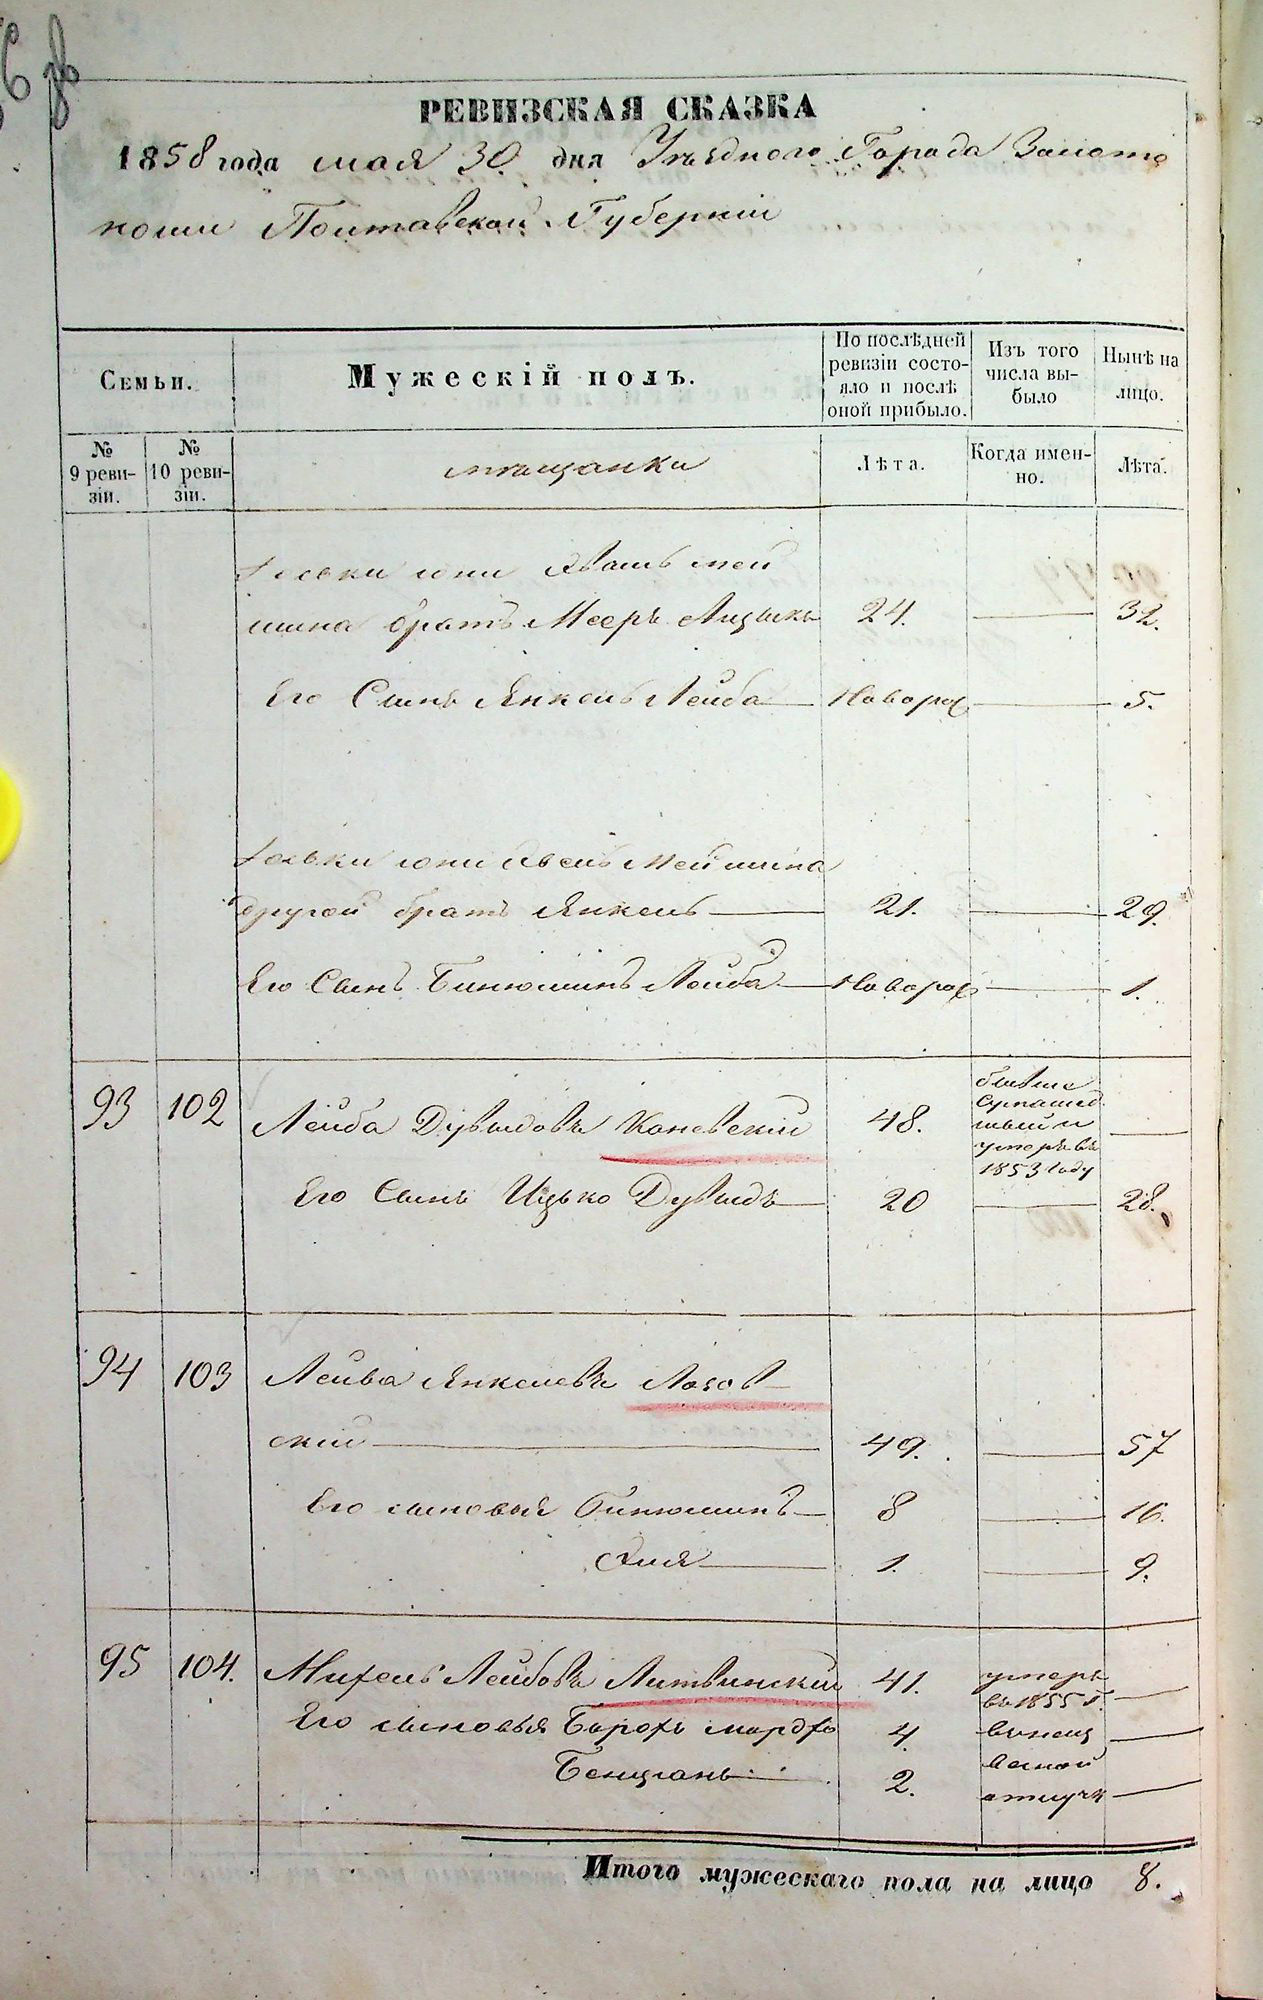 РЕВИЗСКАЯ СКАЗКА
1858 года мая 30 дня Уѣзднаго Города Золото
ноши Полтавской Губерніи
Семьи.
Мужескій полъ.
По послѣдней ревизіи состояло и послѣ оной прибыло.
Изъ того числа выбыло
Нынѣ на лицо.
№ 9 ревизіи.
№ 10 ревизіи.
мѣщанки
Лѣта.
Когда именно.
Лѣта.
шина братъ Мееръ Лицько 24. 32.
Его Сынъ Янкель Лейба Новорож 5.
другой братъ Янкель 21. 29.
Его Сынъ Бинюминъ Лейба Новорож 1.
93 102 Лейба Дувидовъ Каневскій 48.
умеръ въ
1853 году
Его Сынъ Ицько Дувидъ 20 28.
94 103 Лейба Янкелевъ Лозов
скій 49. 57
Его сыновья Бинюминъ 8 16.
Элія 1. 9.
95 104. Михель Лейбовъ Литвинскій 41. умеръ
въ 1855 г.
Его сыновья Борохъ Мордхо 4.
Бенціонъ 2.
Итого мужескаго пола на лицо 8.